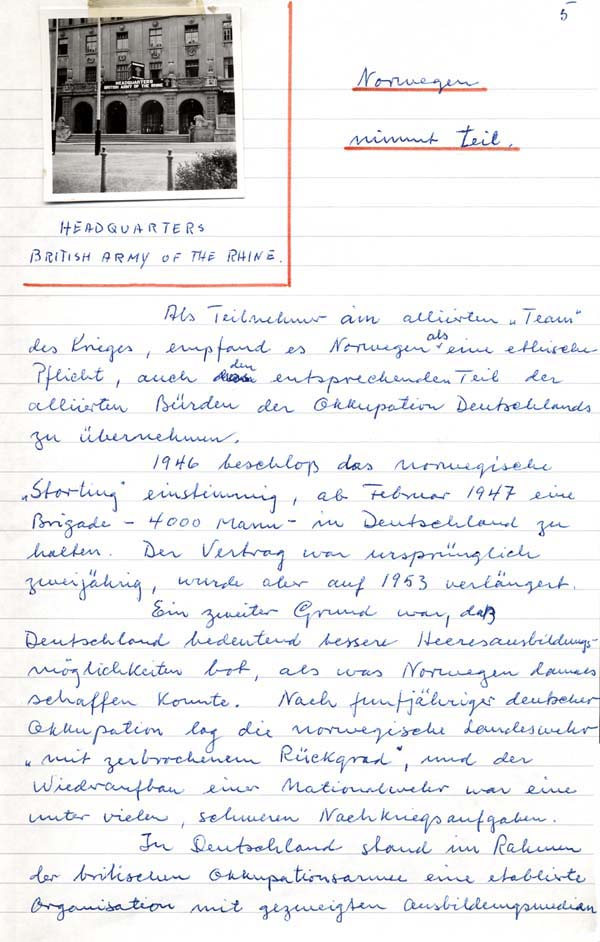 5
HEADQUARTERS
BRITISH ARMY OF THE RHINE
Norwegen
nimmt teil.
HEADQUARTERS
BRITISH ARMY OF THE RHINE.
Als Teilnehmer am alliierten „Team"
des Krieges, empfand es Norwegen als eine ethische
Pflicht, auch den entsprechenden Teil der
alliierten Bürden der Okkupation Deutschlands
zu übernehmen.
1946 beschloß das norwegische
„Storting" einstimmig, ab Februar 1947 eine
Brigade - 4000 Mann - in Deutschland zu
halten. Der Vertrag war ursprünglich
zweijährig, wurde aber auf 1953 verlängert.
Ein zweiter Grund war, daß
Deutschland bedeutend bessere Heeresausbildungs-
möglichkeiten bot, als was Norwegen damals
schaffen konnte. Nach fünfjähriger deutscher
Okkupation lag die norwegische Landeswehr
„mit zerbrochenem Rückgrad", und der
Wiederaufbau einer Nationalwehr war eine
unter vielen, schweren Nachkriegsaufgaben.
In Deutschland stand im Rahmen
der britischen Okkupationsarmee eine etablierte
Organisation mit gezweigten Ausbildungsmedien